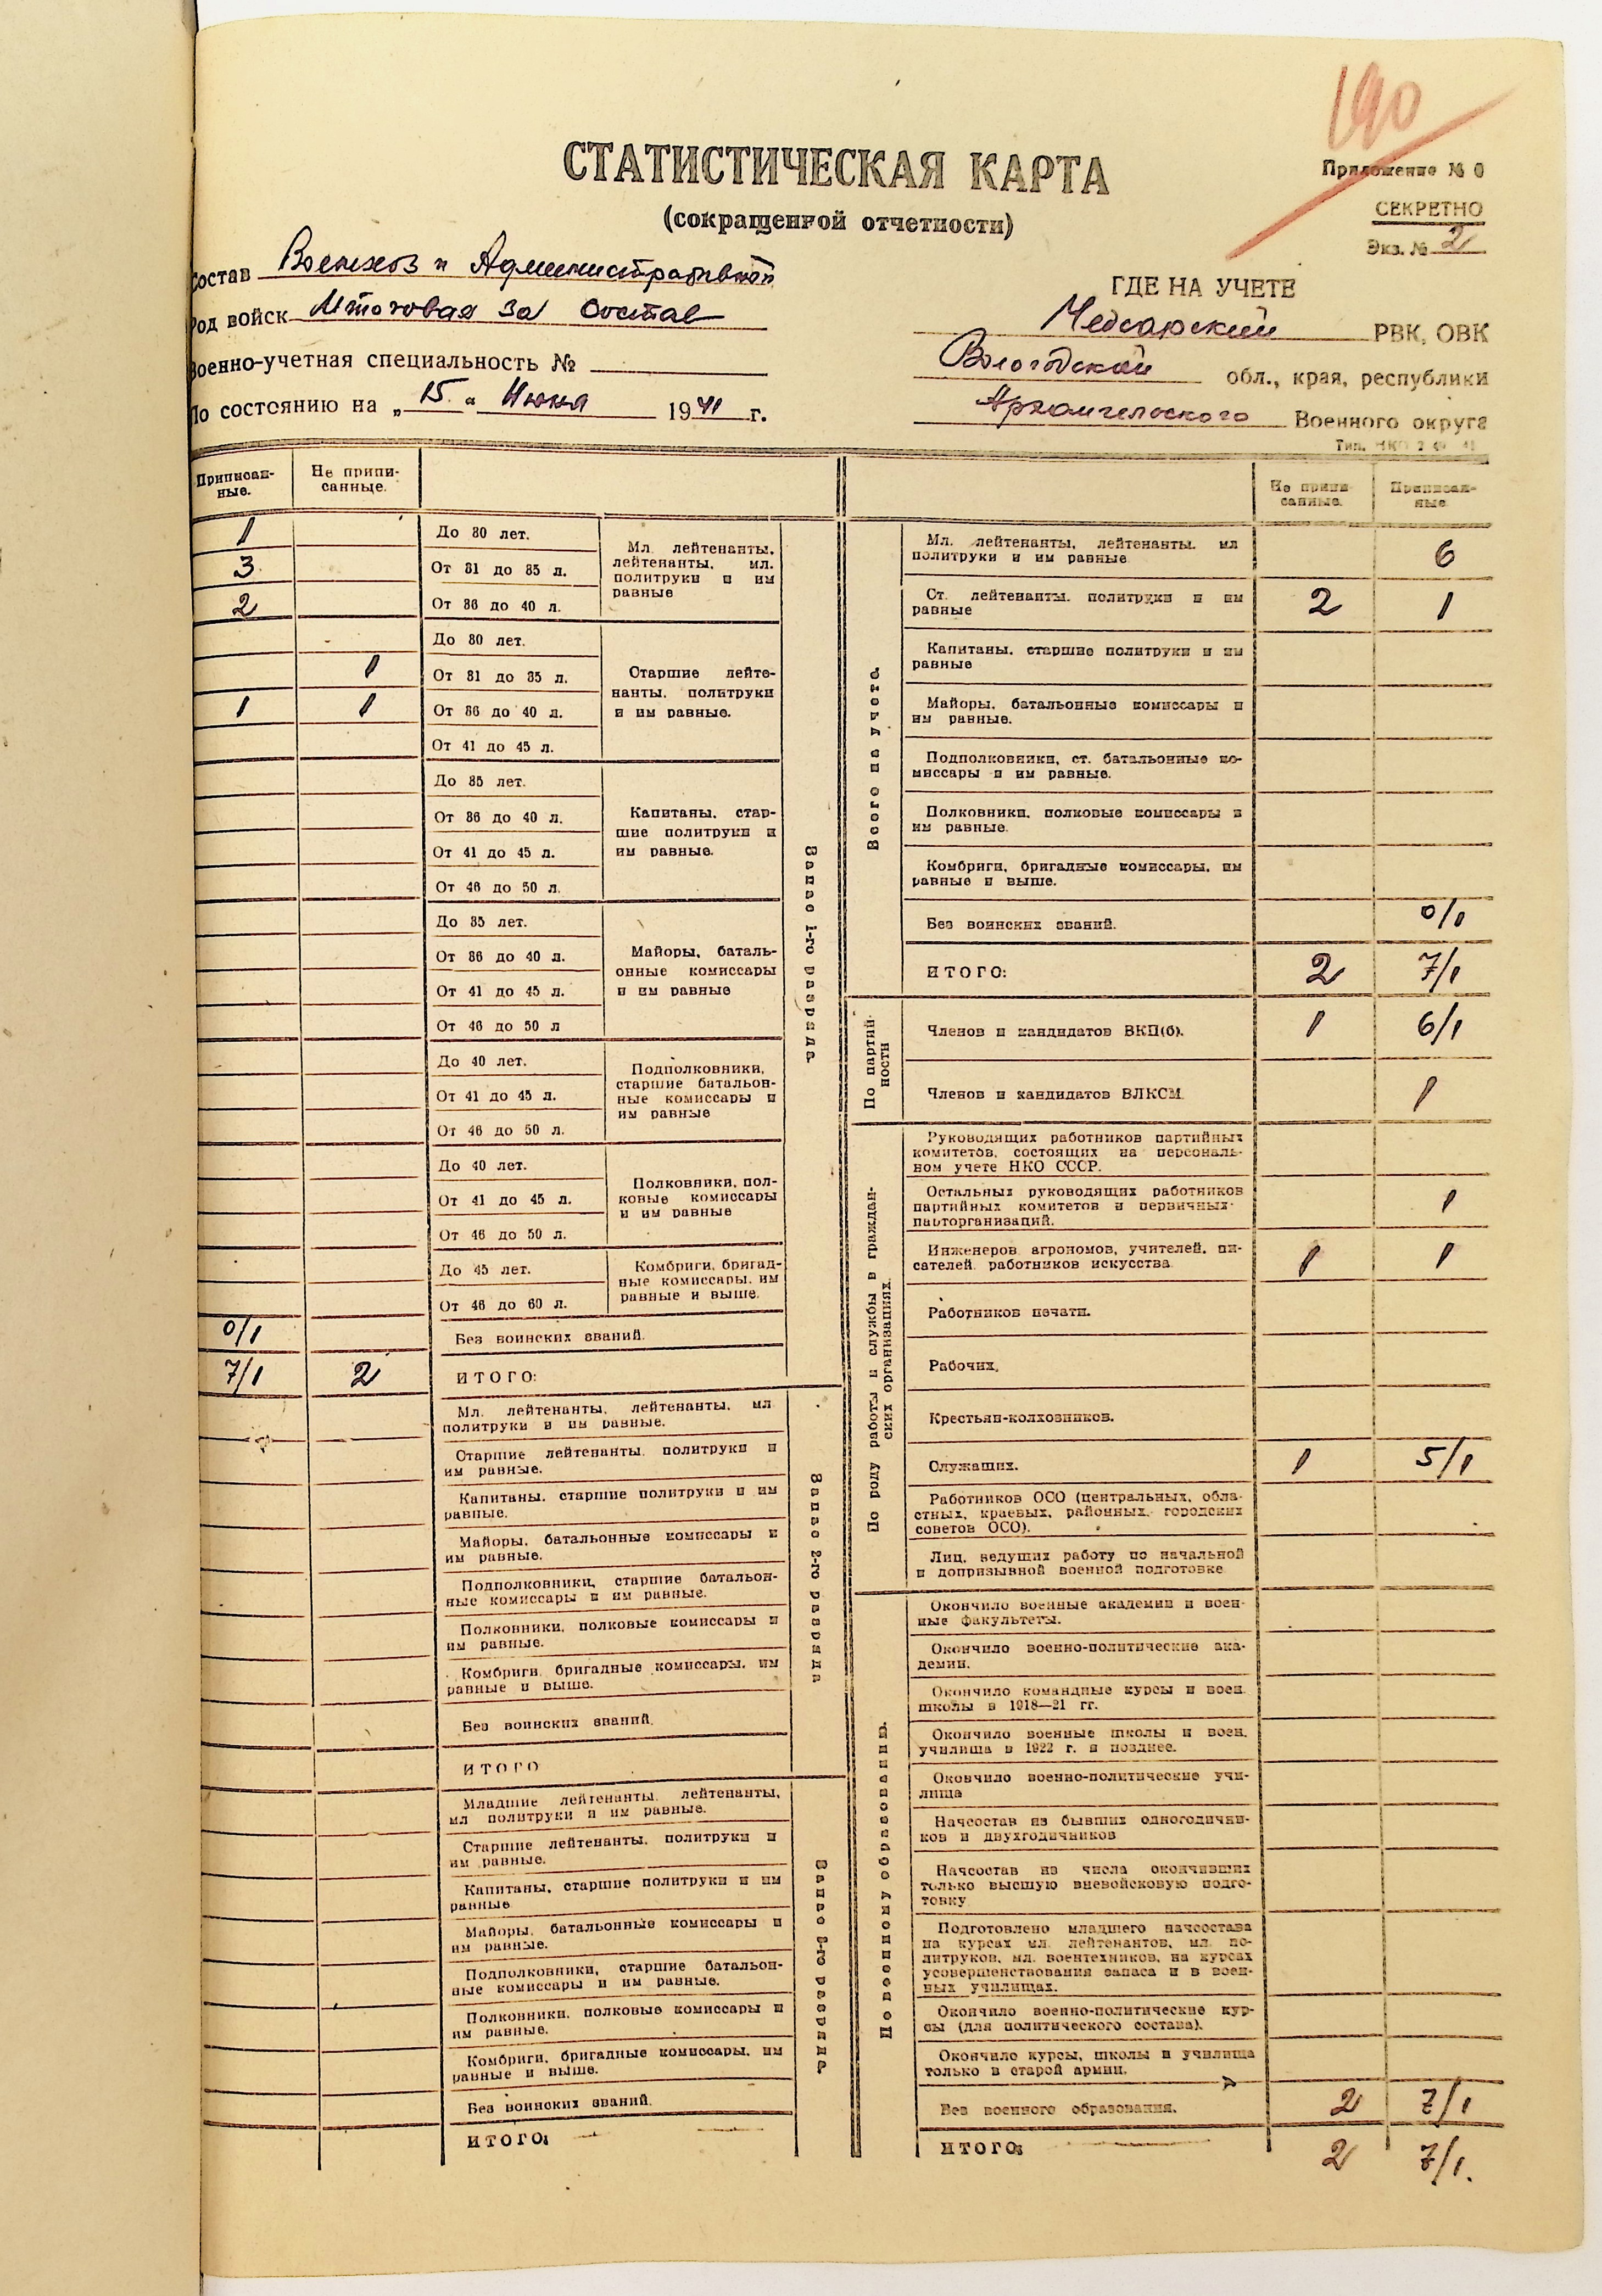 190
СТАТИСТИЧЕСКАЯ КАРТА
(сокращенной отчетности)
Приложение № 6
СЕКРЕТНО
Экз. № 2
Состав Военхоз и Административный
Род войск Итоговая за состав
Военно-учетная специальность №
По состоянию на „15" Июня 1941 г.
ГДЕ НА УЧЕТЕ
РВК, ОВК
Вологодской обл., края, республики
Архангельского Военного округа
Приписан-
ные.
Не припи-
санные.
1 До 30 лет.
3 От 31 до 35 л.
2 От 36 до 40 л.
Мл. лейтенанты,
лейтенанты, мл.
политруки и им
равные
До 30 лет.
1 От 31 до 35 л.
1 1 От 36 до 40 л.
От 41 до 45 л.
Старшие лейте-
нанты, политруки
и им равные.
До 35 лет.
От 36 до 40 л.
От 41 до 45 л.
От 46 до 50 л.
Капитаны, стар-
шие политруки и
им равные.
До 35 лет.
От 36 до 40 л.
От 41 до 45 л.
От 46 до 50 л
Майоры, баталь-
онные комиссары
и им равные
До 40 лет.
От 41 до 45 л.
От 46 до 50 л.
Подполковники,
старшие батальон-
ные комиссары и
им равные
До 40 лет.
От 41 до 45 л.
От 46 до 50 л.
Полковники, пол-
ковые комиссары
и им равные
До 45 лет.
От 46 до 60 л.
Комбриги, бригад-
ные комиссары, им
равные и выше.
0/1 Без воинских званий.
7/1 2 ИТОГО:
Запас 1-го разряда.
Мл. лейтенанты, лейтенанты, мл
политруки и им равные.
Старшие лейтенанты политруки и
им равные.
Капитаны, старшие политруки и им
равные.
Майоры, батальонные комиссары и
им равные.
Подполковники, старшие батальон-
ные комиссары и им равные.
Полковники, полковые комиссары и
им равные.
Комбриги, бригадные комиссары, им
равные и выше.
Без воинских званий.
ИТОГО
Запас 2-го разряда
Младшие лейтенанты, лейтенанты,
мл политруки и им равные.
Старшие лейтенанты, политруки и
им равные.
Капитаны, старшие политруки и им
равные
Майоры, батальонные комиссары и
им равные.
Подполковники, старшие батальон-
ные комиссары и им равные.
Полковники, полковые комиссары и
им равные.
Комбриги, бригадные комиссары, им
равные и выше.
Без воинских званий.
ИТОГО:
Запас 3-го разряда.
Не припи-
санные.
Приписан-
ные
Всего на учете.
Мл. лейтенанты, лейтенанты, мл
политруки и им равные 6
Ст. лейтенанты, политруки и им
равные 2 1
Капитаны, старшие политруки и им
равные
Майоры, батальонные комиссары и
им равные.
Подполковники, ст. батальонные ко-
миссары и им равные.
Полковники, полковые комиссары и
им равные.
Комбриги, бригадные комиссары, им
равные и выше.
Без воинских званий. 0/1
ИТОГО: 2 7/1
По партий-
ности
Членов и кандидатов ВКП(б). 1 6/1
Членов и кандидатов ВЛКСМ. 1
По роду работы и службы в граждан-
ских организациях.
Руководящих работников партийных
комитетов, состоящих на персональ-
ном учете НКО СССР.
Остальных руководящих работников
партийных комитетов и первичных
парторганизаций. 1
Инженеров, агрономов, учителей, пи-
сателей, работников искусства 1 1
Работников печати.
Рабочих.
Крестьян-колхозников.
Служащих. 1 5/1
Работников ОСО (центральных, обла-
стных, краевых, районных, городских
советов ОСО).
Лиц, ведущих работу по начальной
и допризывной военной подготовке
По военному образованию.
Окончило военные академии и воен-
ные факультеты.
Окончило военно-политические ака-
демии.
Окончило командные курсы и воен.
школы в 1918—21 гг.
Окончило военные школы и воен.
училища в 1922 г. и позднее.
Окончило военно-политические учи-
лища
Начсостав из бывших одногодични-
ков и двухгодичников
Начсостав из числа окончивших
только высшую вневойсковую подго-
товку
Подготовлено младшего начсостава
на курсах мл. лейтенантов, мл. по-
литруков, мл. воентехников, на курсах
усовершенствования запаса и в воен-
ных училищах.
Окончило военно-политические кур-
сы (для политического состава).
Окончило курсы, школы и училища
только в старой армии.
Без военного образования. 2 7/1
ИТОГО: 2 7/1.